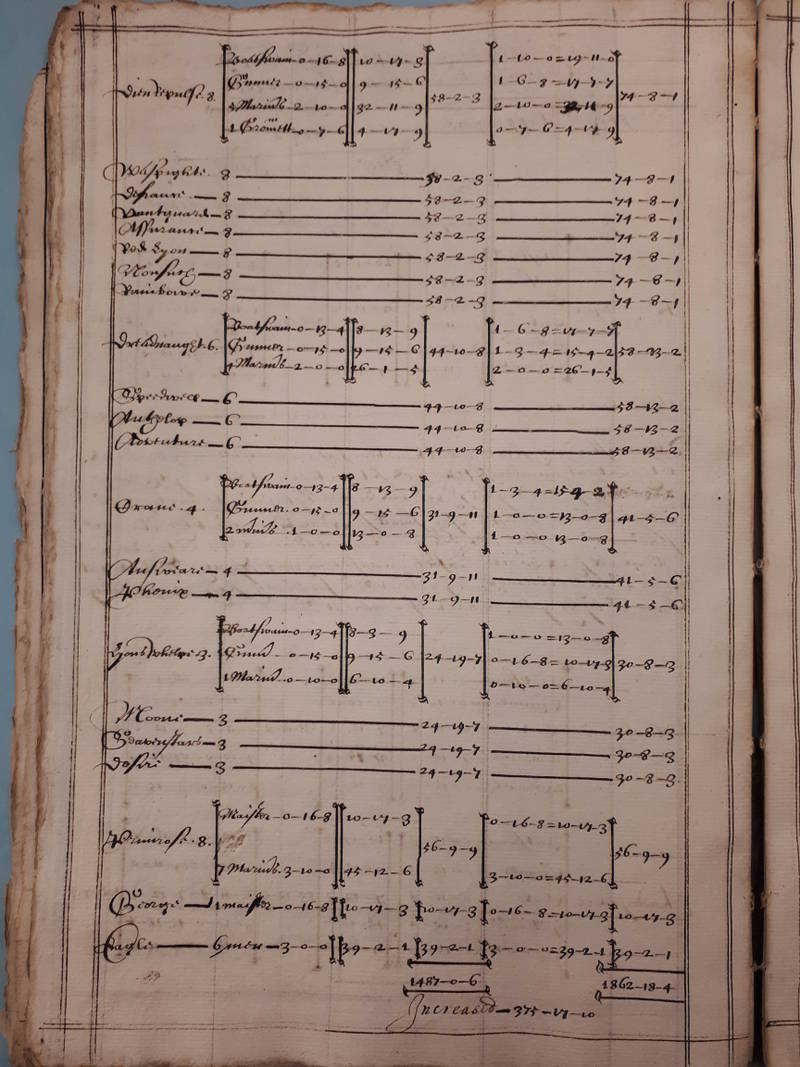 Boatswain-0-16-8 10-17-3 1-10-0=19-11-0
Gunner-0-15-0 9-15-6 1-6-8=17-7-7
Dieu Repulse.8. 5 Marinrs-2-10-0 32-11-9 58-2-3 2-10-0=32-11-9 74-8-1
1 Gromett-0-7-6 4-17-9 0-7-6=4-17-9
Wastspighte. 8 58-2-3 74-8-1
Defiance.-8 58-2-3 74-8-1
Vantguard-8 58-2-3 74-8-1
Assurance-8 58-2-3 74-8-1
Red Lyon-8 58-2-3 74-8-1
Nonsuch-8 58-2-3 74-8-1
Rainbowe-8 58-2-3 74-8-1
Boatswain-0-13-4 8-13-9 1-6-8=17-7-7
Dreadnaught.6. Gunner-0-15-0 9-15-6 44-10-8 1-3-4=15-4-2 58-13-2
4 Marinrs-2-0-0 26-1-5 2-0-0=26-1-5
Speedwell-6 44-10-8 58-13-2
Antelop-6 44-10-8 58-13-2
Adventure-6 44-10-8 58-13-2
Boatswain-0-13-4 8-13-9 1-3-4=15-4-2
Crane.4. Gunner.0-15-0 9-15-6 31-9-11 1-0-0=13-0-8 41-5-6
2 Marinrs.1-0-0 13-0-8 1-0-0 13-0-8
Answeare-4 31-9-11 41-5-6
Phenix-4 31-9-11 41-5-6
Boatswain-0-13-4 8-3-9 1-0-0=13-0-8
Lyons Whelpe.3. Gunnr-0-15-0 9-15-6 24-19-7 0-16-8=10-17-3 30-8-3
1 Marinr.0-10-0 6-10-4 0-10-0=6-10-4
Moone-3 24-19-7 30-8-3
3 24-19-7 30-8-3
Desire-3 24-19-7 30-8-3
Maister-0-16-8 10-17-3 0-16-8=10-17-3
Primrose.8. 56-9-9 56-9-9
7 Marinrs.3-10-0 45-12-6 3-10-0=45-12-6
George-1 maister-0-16-8 10-17-3 10-17-3 0-16-8=10-17-3 10-17-3
Eagle-6 men-3-0-0 39-2-1 39-2-1 3-0-0=39-2-1 39-2-1
1487-0-6 1862-18-4
Increased-375-17-10